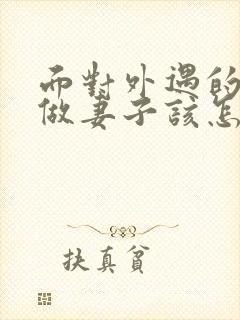 而對外遇的
做妻子該怎
扶真貧